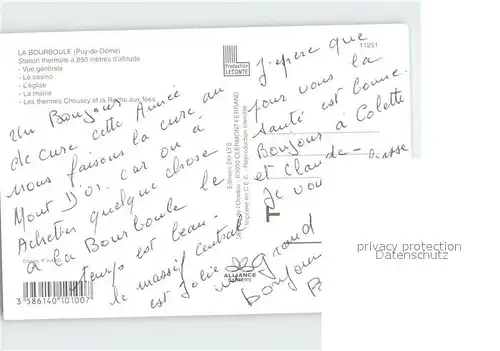 LA BOURBOULE (Puy-de-Dôme)
Station thermale à 850 mètres d'altitude
- Vue générale
- Le casino
- L'église
- La mairie
- Les thermes Choussy et la Roche aux fées
Production
LECONTE
11251
un Bonjour
de cure cette Année
nous faisons la cure au
Mont D'or. car on à
Acheter quelque chose
à la Bourboule le
temps est beau
le massif central
est Jolie
J'epere que
pour vous la
santé est bonne.
Bonjour à Colette
et Claude
Je vou
grand
bonjour
Editions DYLYS
63000 CLERMONT-FERRAND
Imprimé en C.E.E. - Reproduction interdite
ALLIANCE
3 586140 101007
privacy protection
Datenschutz